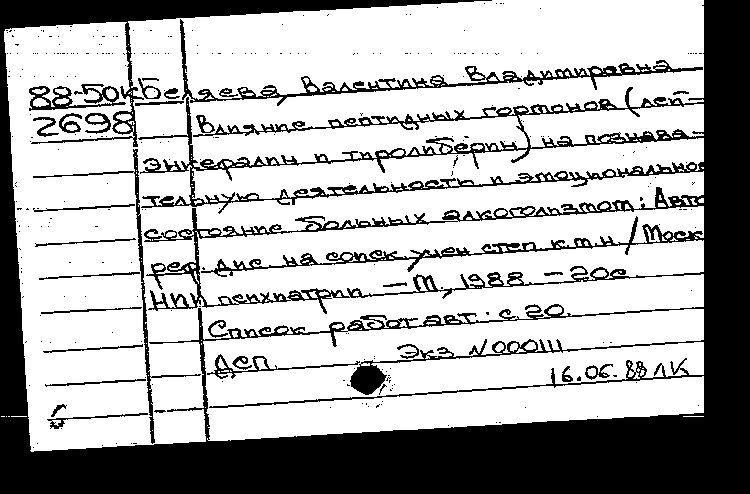 88-50к Беляева, Валентина Владимировна
2698 Влияние пептидных гормонов (лей-
энкефалин и тиролиберин) на познава-
тельную деятельность и эмоциональное
состояние больных алкоголизмом: Авто
реф. дис на соиск. учен степ к.м.н. / Моск
НИИ психиатрии. — М., 1988. — 20с.
Список работ авт.: с. 20.
ДСП. Экз N000111
16.06.88 ЛК